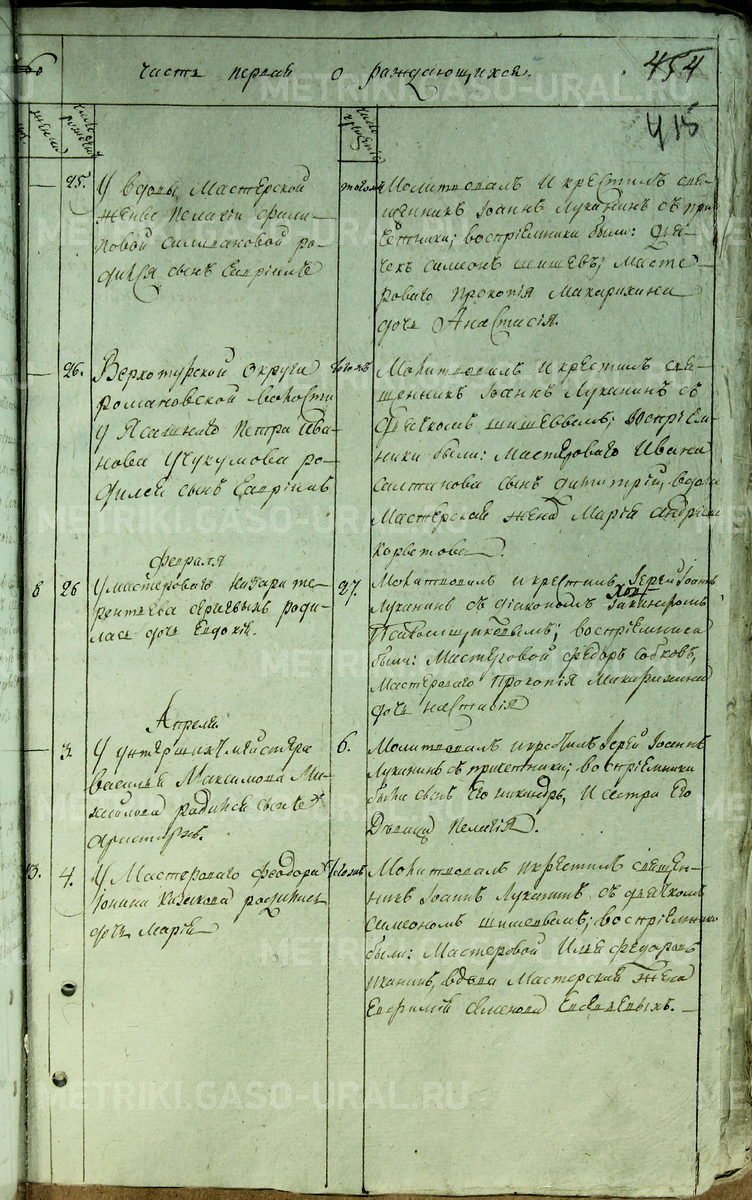 часть первая о раждающихся.
454
415
25.
У вдовы Мастерской
жены Пелагии Фили-
повой Силивановой ро-
дился сынъ Гавріилъ
тогожъ
Молитвовалъ И крестилъ свя-
щенникъ Іоаннъ Луканинъ съ при
четники; воспріемники были: дья-
чекъ Симеонъ Шишевъ; Масте-
роваго Прокопія Макарихина
дочь Анастасія.
26.
Верхотурской Округи
Романовской волости
У Ясашнаго Петра Ива-
нова Учукумова ро-
дился сынъ Гавріилъ
тогожъ
Молитвовалъ И крестилъ свя-
щенникъ Іоаннъ Луканинъ съ
дьячкомъ Шишевымъ; воспріем-
ники были: Мастероваго Ивана
Салтанова сынъ Димитрій, вдова
Мастерская жена Марія Андріева
февраля
8
26
У мастероваго Назара Те-
рентьева роди-
лась дочь Евдокія.
27.
Молитвовалъ и крестилъ Іерей Іоаннъ
Луканинъ съ діакономъ
воспріемники
были: Мастеровой Федоръ Собковъ,
Мастероваго Прокопія Макарихина
дочь Настасія
Апреля
3
У унтершихтмейстера
Василья Максимова Ми-
хайлова родился сынъ
Аристархъ.
6.
Молитвовалъ и крестилъ Іерей Іоаннъ
Луканинъ съ причетники; воспріемники
были сынъ Его Никандръ, И сестра Его
Дѣвица Пелагія.
13.
4.
У Мастероваго Феодора
Іонина Казакова родилась
дочь Марія
тогожъ
Молитвовалъ и крестилъ священ-
никъ Іоаннъ Луканинъ съ дьячкомъ
Симеономъ Шишевымъ; воспріемники
были: Мастеровой Илья Федоровъ
вдова Мастерская жена
Евфимія Семенова
METRIKI.GASO-URAL.RU